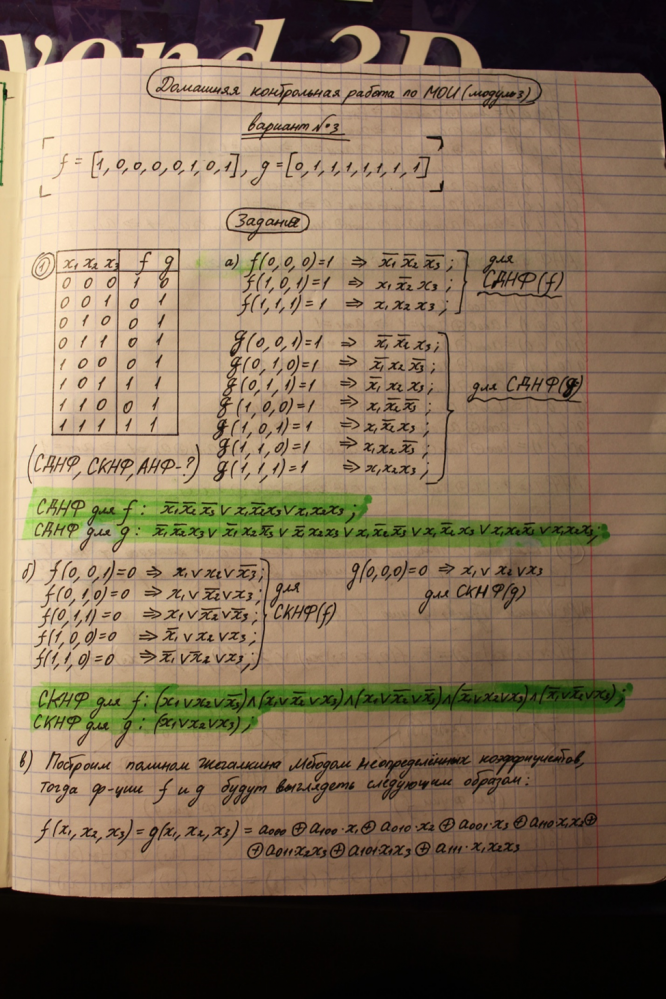 yond 3D
Домашняя контрольная работа по МОИ (модуль 3)
вариант №3
f = [1,0,0,0,0,1,0,1], g = [0,1,1,1,1,1,1,1]
Задания
① x₁ x₂ x₃ f g
0 0 0 1 0
0 0 1 0 1
0 1 0 0 1
0 1 1 0 1
1 0 0 0 1
1 0 1 1 1
1 1 0 0 1
1 1 1 1 1
(СДНФ, СКНФ, АНФ-?)
а) f(0,0,0)=1 ⇒ x̅₁ x̅₂ x̅₃;
f(1,0,1)=1 ⇒ x₁ x̅₂ x₃;
f(1,1,1)=1 ⇒ x₁ x₂ x₃;
для СДНФ(f)
g(0,0,1)=1 ⇒ x̅₁ x̅₂ x₃;
g(0,1,0)=1 ⇒ x̅₁ x₂ x̅₃;
g(0,1,1)=1 ⇒ x̅₁ x₂ x₃;
g(1,0,0)=1 ⇒ x₁ x̅₂ x̅₃;
g(1,0,1)=1 ⇒ x₁ x̅₂ x₃;
g(1,1,0)=1 ⇒ x₁ x₂ x̅₃;
g(1,1,1)=1 ⇒ x₁ x₂ x₃;
для СДНФ(g)
СДНФ для f: x̅₁x̅₂x̅₃ ∨ x₁x̅₂x₃ ∨ x₁x₂x₃;
СДНФ для g: x̅₁x̅₂x₃ ∨ x̅₁x₂x̅₃ ∨ x̅₁x₂x₃ ∨ x₁x̅₂x̅₃ ∨ x₁x̅₂x₃ ∨ x₁x₂x̅₃ ∨ x₁x₂x₃;
б) f(0,0,1)=0 ⇒ x₁ ∨ x₂ ∨ x̅₃;
f(0,1,0)=0 ⇒ x₁ ∨ x̅₂ ∨ x₃;
f(0,1,1)=0 ⇒ x₁ ∨ x̅₂ ∨ x̅₃;
f(1,0,0)=0 ⇒ x̅₁ ∨ x₂ ∨ x₃;
f(1,1,0)=0 ⇒ x̅₁ ∨ x̅₂ ∨ x₃;
для СКНФ(f)
g(0,0,0)=0 ⇒ x₁ ∨ x₂ ∨ x₃
для СКНФ(g)
СКНФ для f: (x₁∨x₂∨x̅₃)∧(x₁∨x̅₂∨x₃)∧(x₁∨x̅₂∨x̅₃)∧(x̅₁∨x₂∨x₃)∧(x̅₁∨x̅₂∨x₃);
СКНФ для g: (x₁∨x₂∨x₃);
в) Построим полином Жегалкина методом неопределённых коэффициентов,
тогда ф-ции f и g будут выглядеть следующим образом:
f(x₁, x₂, x₃) = g(x₁, x₂, x₃) = a₀₀₀ ⊕ a₁₀₀·x₁ ⊕ a₀₁₀·x₂ ⊕ a₀₀₁·x₃ ⊕ a₁₁₀·x₁x₂ ⊕
⊕ a₀₁₁x₂x₃ ⊕ a₁₀₁x₁x₃ ⊕ a₁₁₁·x₁x₂x₃